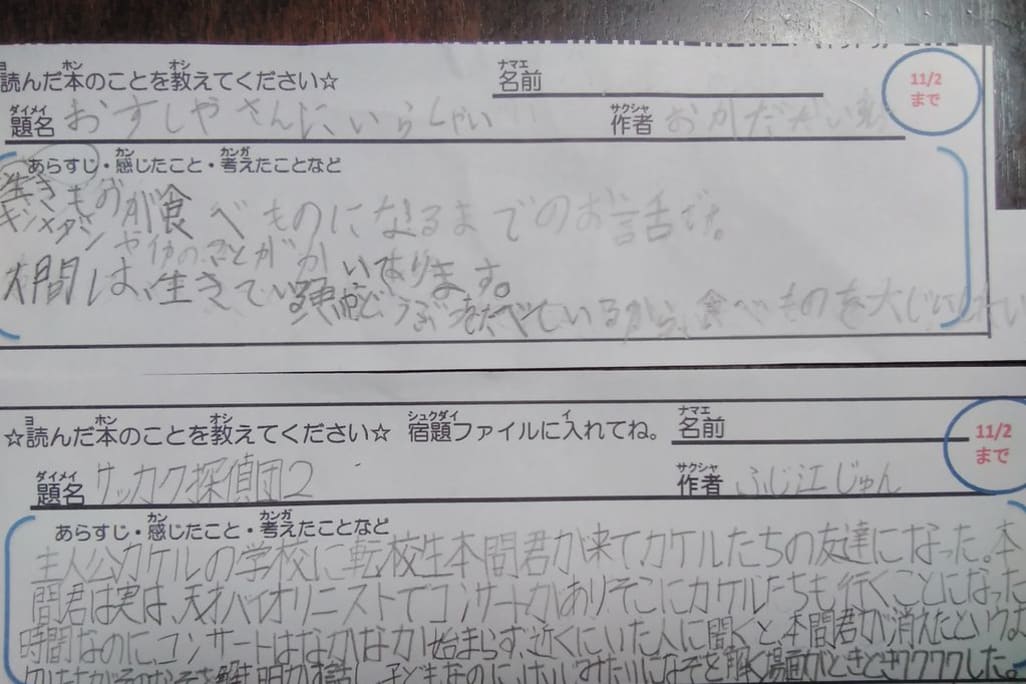 読んだ本のことを教えてください☆ 名前
11/2
まで
題名 おすしやさんにいらっしゃい 作者 おかだだい
あらすじ・感じたこと・考えたことなど
生きものが食べものになるまでのお話だ。
キンメダイ やイカのことがかいてあります。
人間は、生きている動物どうぶつをたべているから、食べものを大じにしたい
☆読んだ本のことを教えてください☆ 宿題ファイルに入れてね。 名前
11/2
まで
題名 サッカク探偵団2 作者 ふじ江じゅん
あらすじ・感じたこと・考えたことなど
主人公カケルの学校に転校生本間君が来てカケルたちの友達になった。本
間君は実は、天才バイオリニストでコンサートがあり、そこにカケルたちも行くことになった
時間なのに、コンサートはなかなか始まらず、近くにいた人に聞くと、本間君が消えたという
なぞを解く場面がときどきワクワクした。